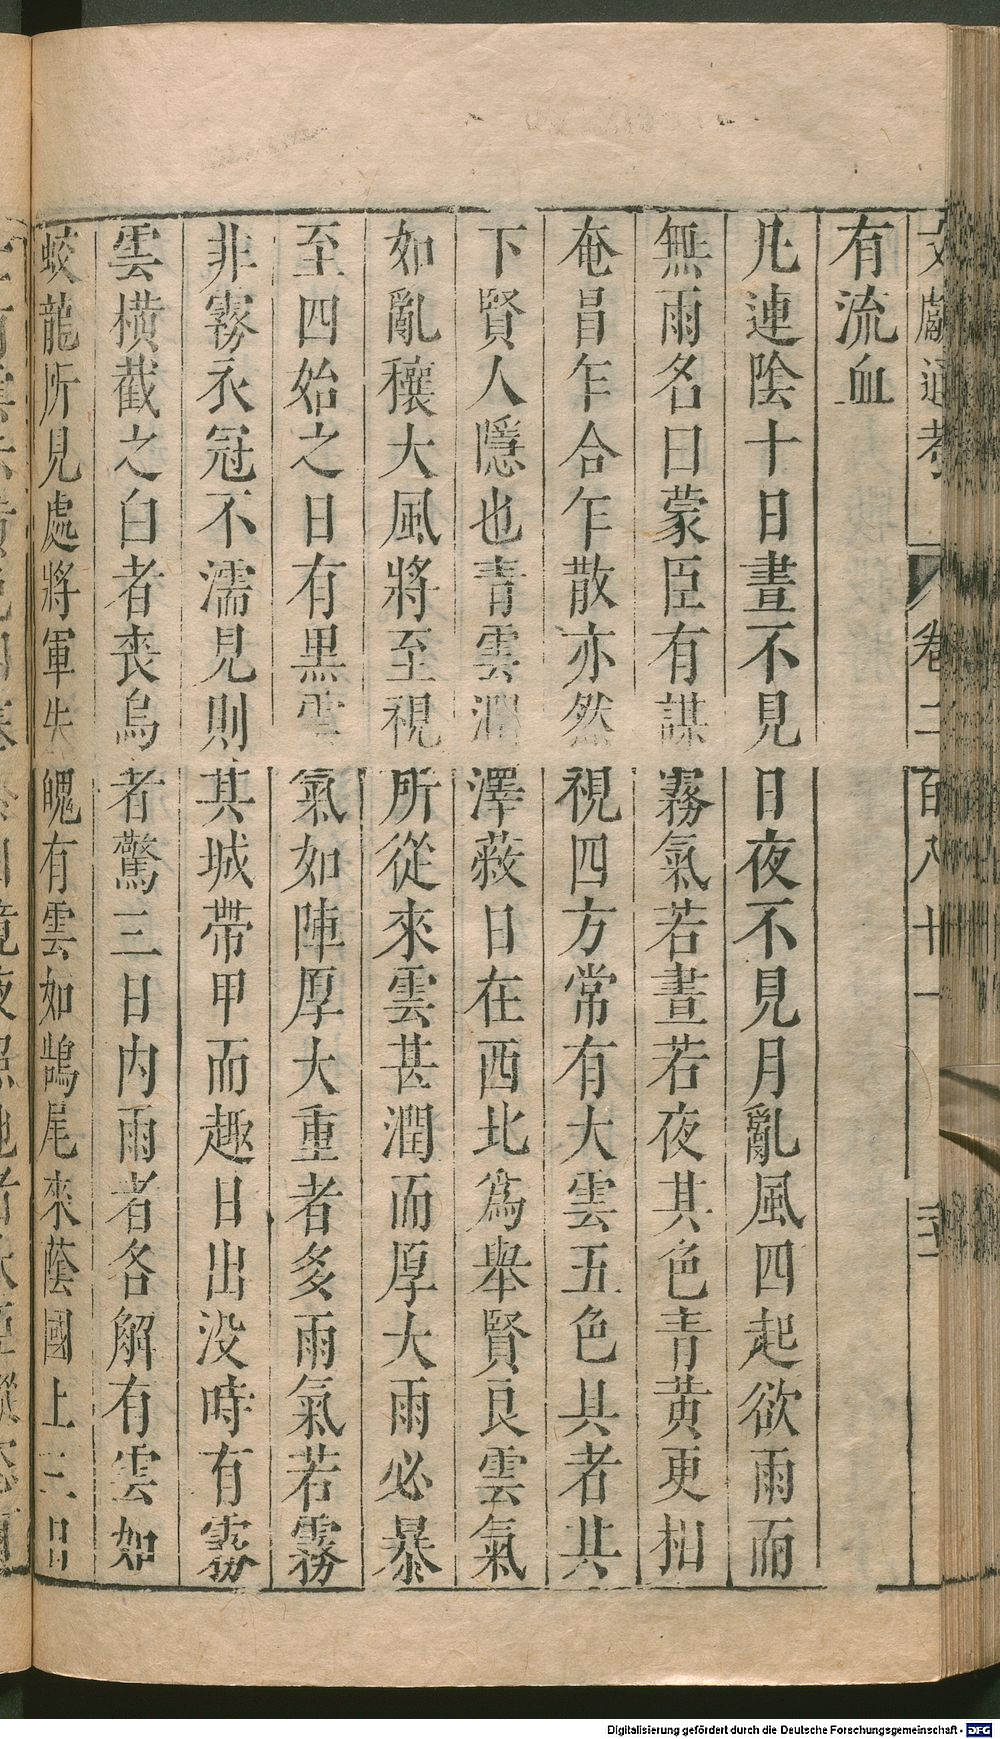 文獻通考 卷二百八十一
有流血
凡連陰十日晝不見日夜不見月亂風四起欲雨而
無雨名曰蒙臣有謀霧氣若晝若夜其色青黃更相
奄冒乍合乍散亦然視四方常有大雲五色具者其
下賢人隱也青雲潤澤蔽日在西北為舉賢良雲氣
如亂穰大風將至視所從來雲甚潤而厚大雨必暴
至四始之日有黑雲氣如陣厚大重者多雨氣若霧
非霧衣冠不濡見則其城帶甲而趣日出没時有霧
雲橫截之白者喪烏者驚三日內雨者各解有雲如
蛟龍所見處將軍失魄有雲如鵠尾來蔭國上三日
Digitalisierung gefördert durch die Deutsche Forschungsgemeinschaft - DFG